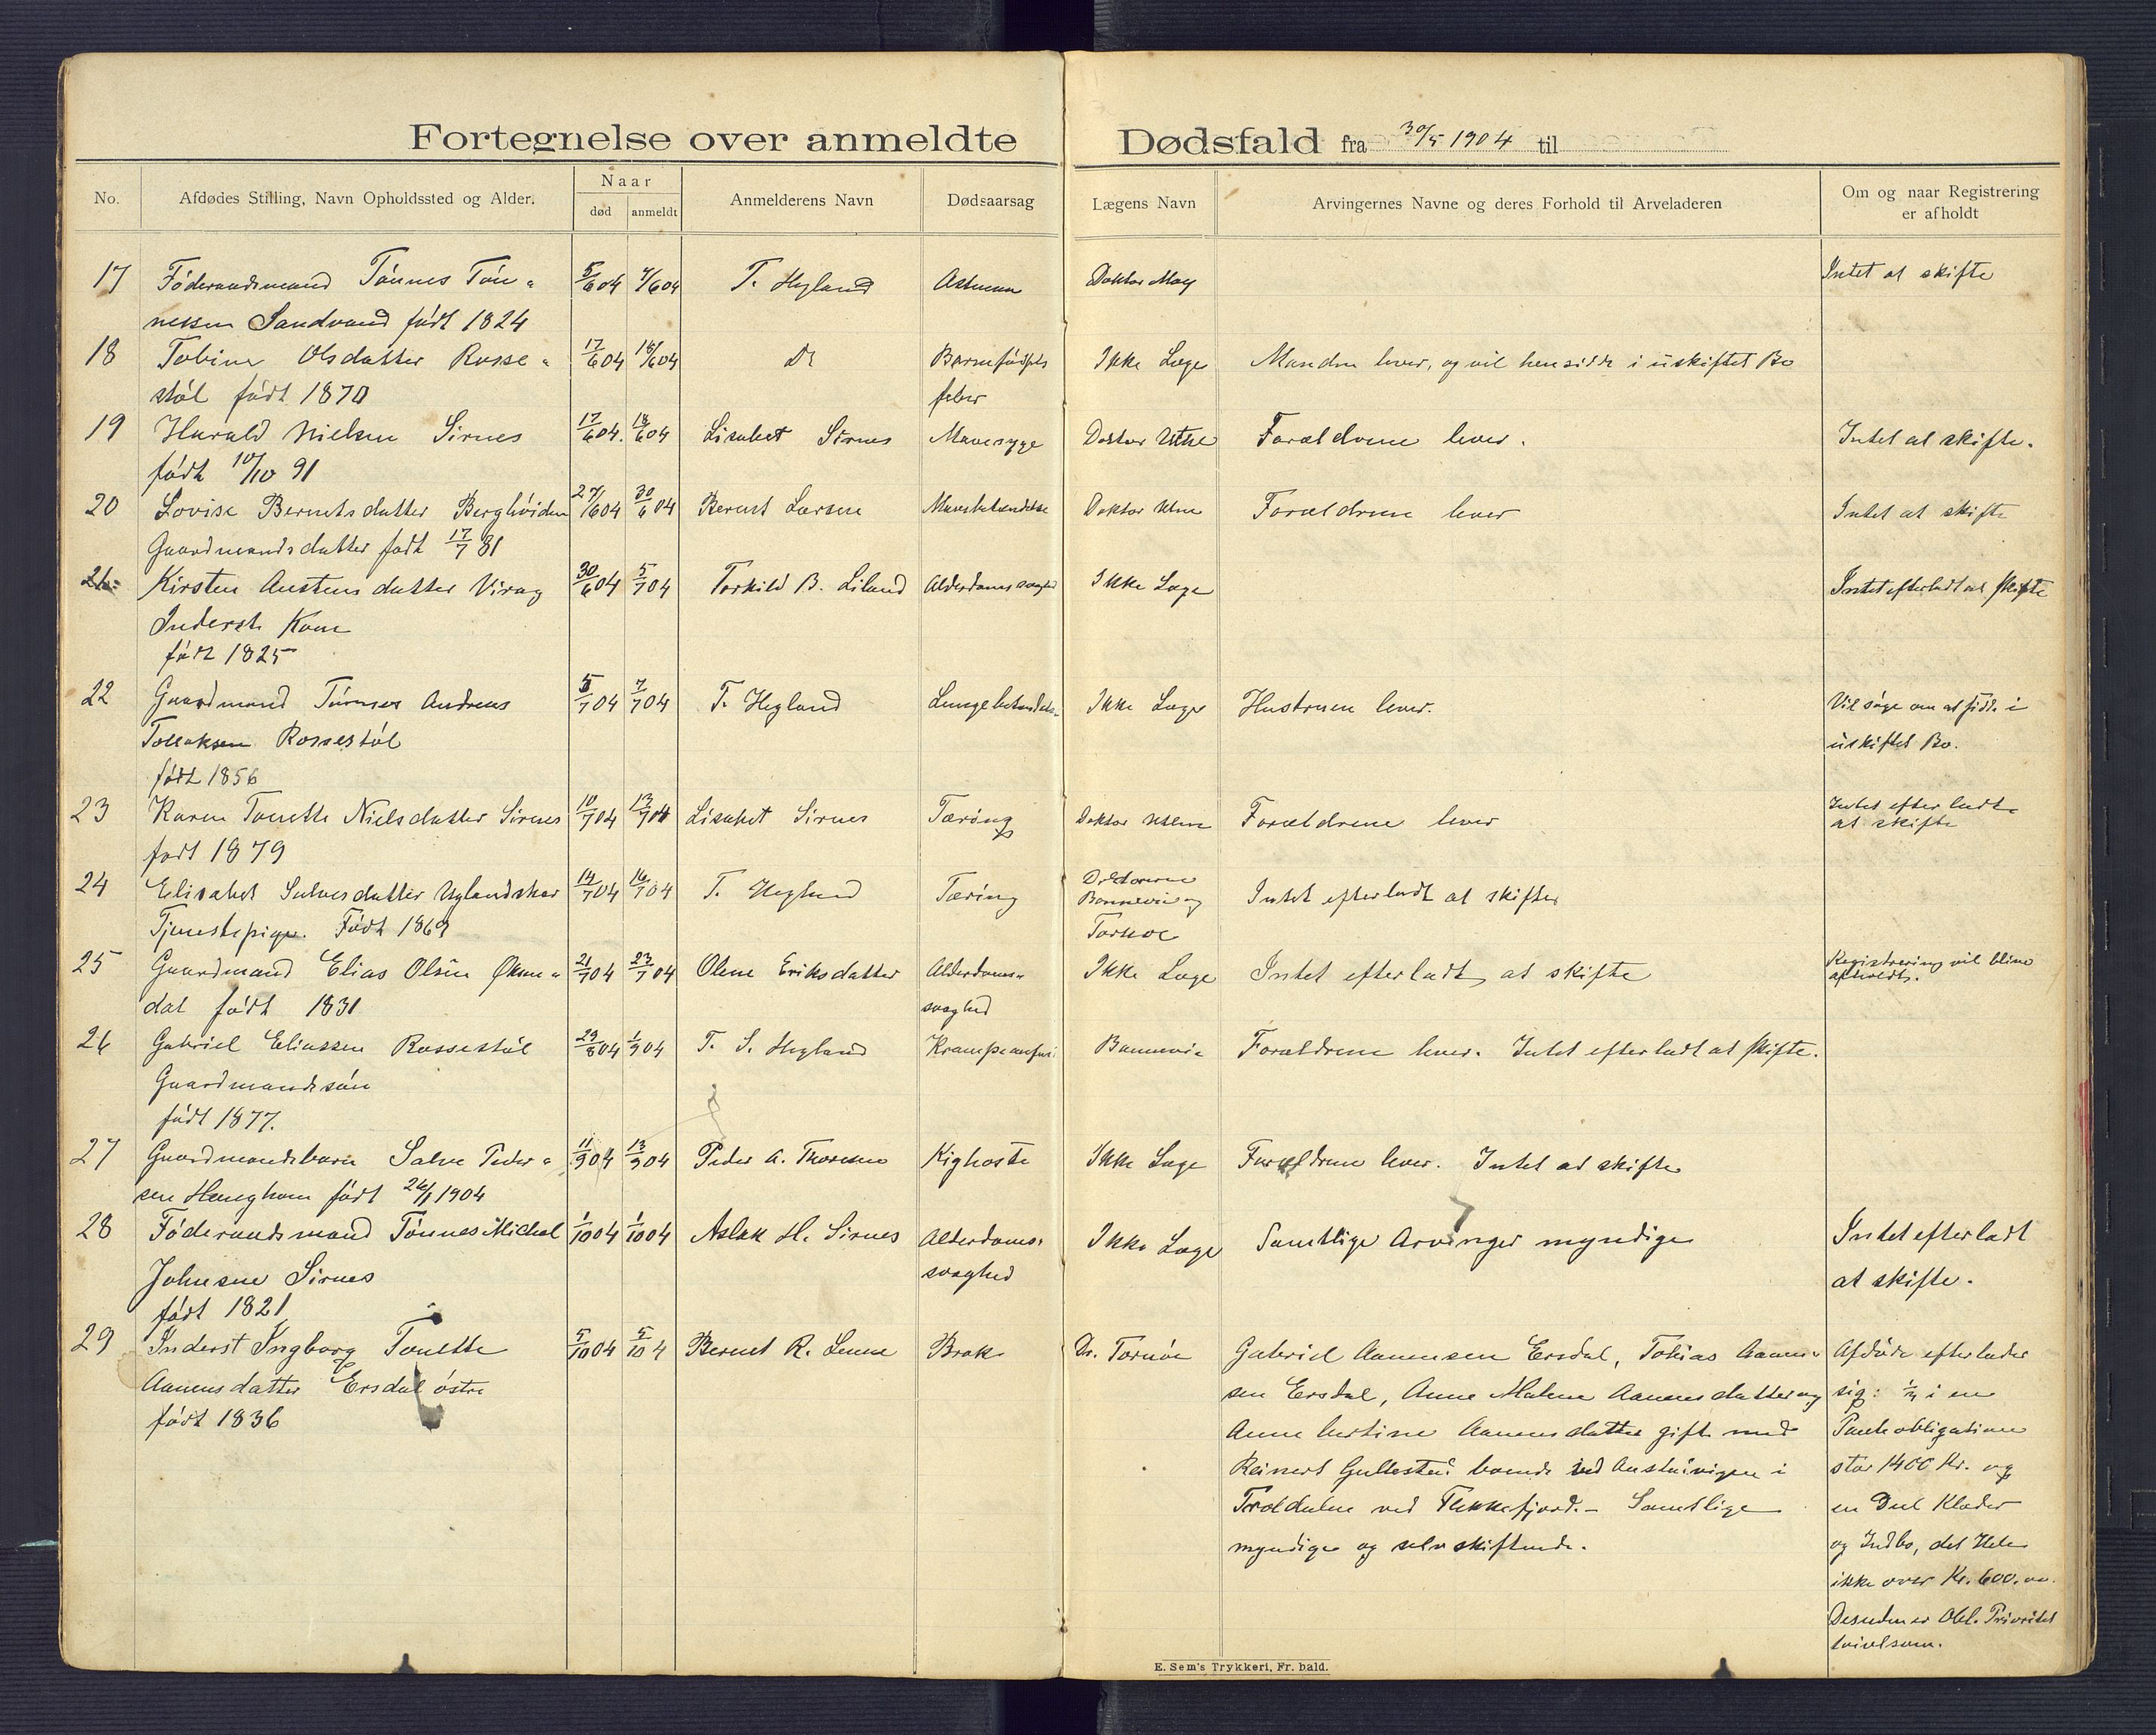 Fortegnelse over anmeldte Dødsfald fra 30/5 1904 til
No. Afdødes Stilling, Navn Opholdssted og Alder. Naar død anmeldt Anmelderens Navn Dødsaarsag Lægens Navn Arvingernes Navne og deres Forhold til Arveladeren Om og naar Registrering er afholdt
17 Föderaadsmand Tönnes Tön- 5/6 04 7/6 04 T. Hegland Astma Doktor May Intet at skifte
nessen Sandvand födt 1824
18 Tobine Olsdatter Rosse- 17/6 04 18/6 04 Do Barnefödsels Ikke Læge Manden lever, og vil hensidde i uskiftet Bo
stöl födt 1870 feber
19 Harald Nielsen Sirnes 17/6 04. 18/6 04 Lisabet Sirnes Mavesyge Doktor Forældrene lever. Intet at skifte.
födt 10/10 91
20 Lovise Berntsdatter Berghöiden 27/6 04 30/6 04 Bernt Larsen Mavebetændelse Doktor Forældrene lever Intet at skifte
Gaardmandsdatter födt 17/7 81
21 Kirsten Austensdatter Virag 30/6 04 5/7 04 Torkild B. Liland Alderdomssvaghed Ikke Læge Intet efterladt at skifte
Inderst Kone
födt 1825
22 Gaardmand Tönnes Andreas 5/7 04 7/7 04 T. Hegland Lungebetændelse Ikke Læge Hustruen lever. Vil söge om at sidde i
Tollaksen Rossestöl uskiftet Bo.
födt 1856
23 Karen Tonette Nielsdatter Sirnes 10/7 04 13/7 04 Lisabet Sirnes Tæring Doktor Forældrene lever Intet efterladt
at skifte
födt 1879
24 Elisabet Salvesdatter Uglandskar 14/7 04 16/7 04 T. Hegland Tæring Doktorerne
Bonnevie og Intet efterladt at skifte
Tjenestepige. Födt 1869 Tornöe
25 Gaardmand Elias Olsen Øksen- 21/7 04 23/7 04 Olene Eriksdatter Alderdoms- Ikke Læge Intet efterladt at skifte Registrering vil blive
afholdt.
dal födt 1831 svaghed
26 Gabriel Eliassen Rossestöl 29/8 04 1/9 04 T. S. Hegland Krampeanfald Bonnevie Forældrene lever. Intet efterladt at skifte.
Gaardmandssön
födt 1877.
27 Gaardmandsbarn Salve Peder- 11/9 04 13/9 04 Peder A. Thorsen Kighoste Ikke Læge Forældrene lever. Intet at skifte
sen födt 26/1 1904
28 Föderaadsmand Tönnes Mickal 1/10 04 1/10 04 Aslak H. Sirnes Alderdoms- Ikke Læge Samtlige Arvinger myndige Intet efterladt
Johnsen Sirnes svaghed at skifte.
födt 1821
29 Inderst Ingborg Tonette 5/10 04 5/10 4 Bernt R. Brok Dr. Tornöe Gabriel Aanensen Ersdal, Tobias Aanen- Afdöde efterlader
Aanensdatter Ersdal östre sen Ersdal, Anne Malene Aanensdatter og sig: 1/4 i en
födt 1836 Anne Aanensdatter gift med Panteobligation
Reinert boende ved i stor 1400 Kr. og
ved Flekkefjord. – Samtlige en Del Klæder
myndige og selvskiftende. og Indbo, det Hele
ikke over Kr. 600.00.
Desuden er Obl. Prioritet
tvivlsom.
E. Sem's Trykkeri, Fr. hald.